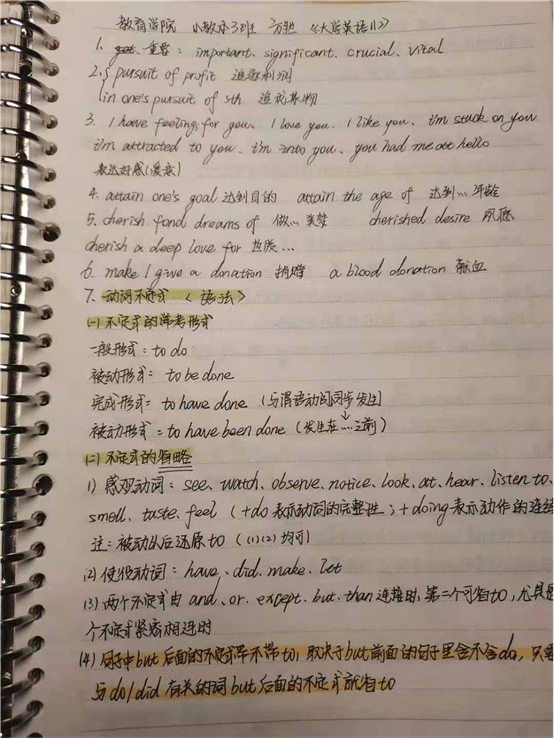 教育学院 小教本3班 《大学英语II》
1. 重要: important、significant、crucial、vital
2. { pursuit of profit 追逐利润
in one's pursuit of sth. 追求某物
3. I have feelings for you、I love you、I like you、i'm stuck on you
i'm attracted to you、i'm into you、you had me at hello
表达好感(爱意)
4. attain one's goal 达到目的 attain the age of 达到…年龄
5. cherish fond dreams of 做…美梦 cherished desire 夙愿
cherish a deep love for 热爱…
6. make / give a donation 捐赠 a blood donation 献血
7. 动词不定式 <语法>
(一) 不定式的常考形式
一般形式: to do
被动形式: to be done
完成形式: to have done (与谓语动词同步发生)
被动形式: to have been done (发生在…之前)
(二) 不定式的省略
(1) 感观动词: see、watch、observe、notice、look、at、hear、listen to、
smell、taste、feel (+do 表示动词的完整性; +doing 表示动作的连续
注: 被动以后还原to ((1)(2) 均可)
(2) 使役动词: have、did、make、let
(3) 两个不定式由 and、or、except、but、than 连接时, 第二个可省to, 尤其是
个不定式紧密相连时
(4) 句子中but后面的不定式带不带to, 取决于but前面的句子里含不含do, 只要
与do/did 有关的词but后面的不定式就省to